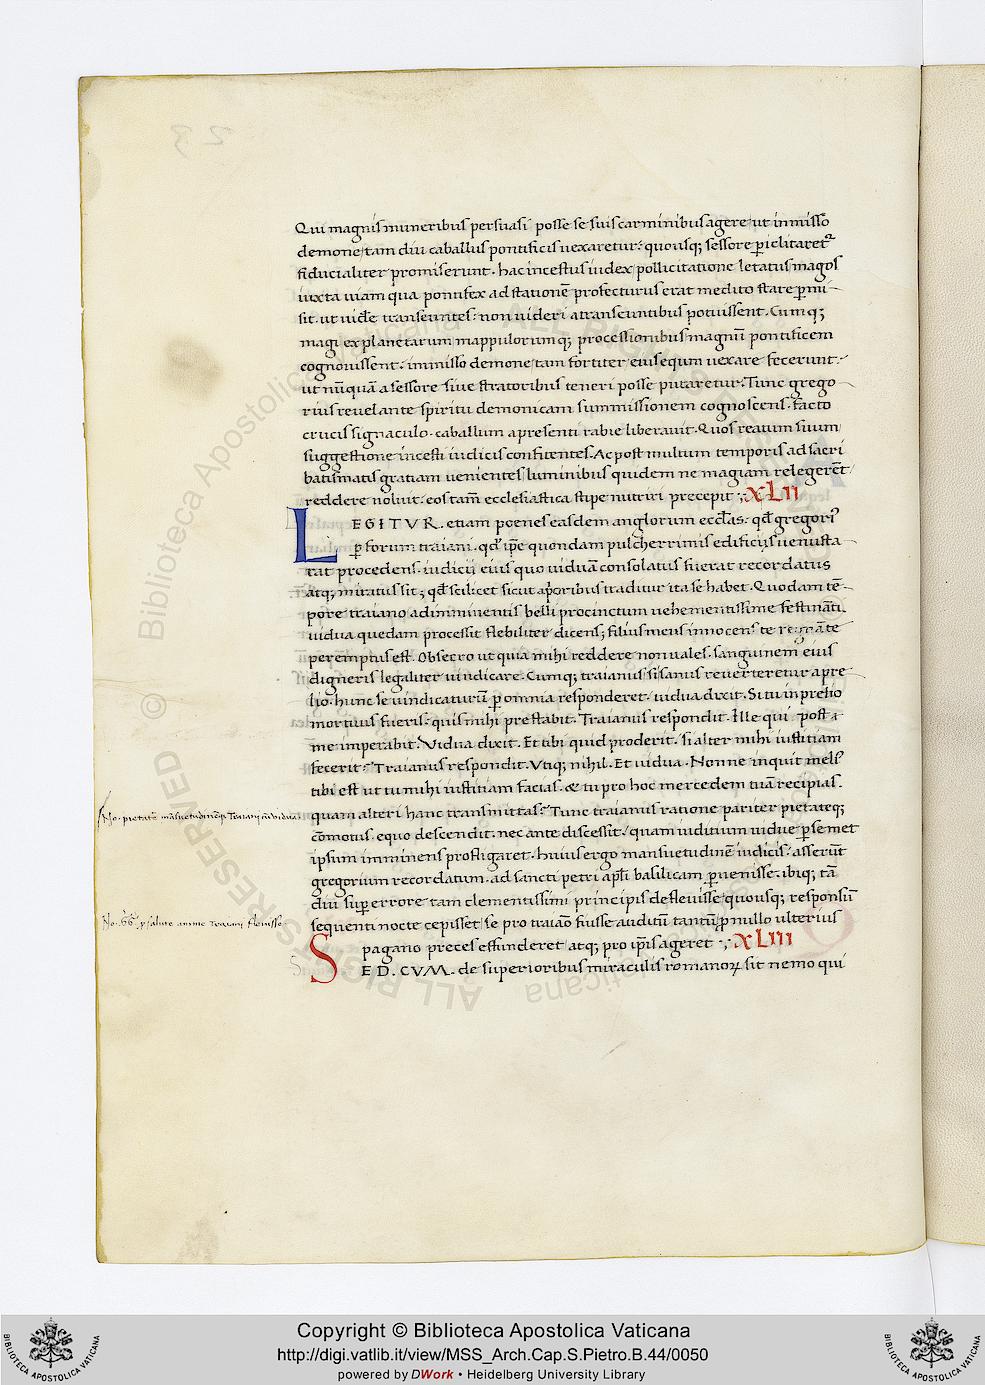 Qui magnis muneribus persuasi posse se suis carminibus agere ut inmisso
demone tam diu caballus pontificis uexaretur: quousq; sessore ꝑiclitaret᷑
fiducialiter promiserunt. hac incestus iudex pollicitatione letatus magos
iuxta uiam qua pontifex ad stationē profecturus erat medito stare ꝑmi-
sit. ut uidēre transeuntes: non uideri a transeuntibus potuissent. Cumq;
magi ex planetarum mappulorumq; processionibus magnū pontificem
cognouissent: inmisso demone tam fortiter eius equm uexare fecerunt.
ut nūquā a sessore siue stratoribus teneri posse putaretur. Tunc grego
rius reuelante spiritu demonicam summissionem cognoscens. facto
crucis signaculo. caballum a presenti rabie liberauit. Quos reatum suum
suggestione incesti iudicis confitentes. Ac post multum temporis ad sacri
batismatis gratiam uenientes luminibus quidem ne magiam relegerēt
reddere noluit. eos tam̄ ecclesiastica stipe nutriri precepit :; XLII
LEGITVR. etiam poenes easdem anglorum eccl̄as. qđ gregori᾽
ꝑ forum traiani. qđ ip̄e quondam pulcherrimis edificijs uenusta
rat procedens. iudicii eius quo uiduā consolatus fuerat recordatus
atq; miratus sit; qđ scilicet sicut a p̄oribus traditur ita se habet. Quodam tē-
pore traiano ad imminentis belli procinctum uehementissime festināti.
uidua quedam processit flebiliter dicens; filius meus innocens te regnāte
peremptus est. Obsecro ut quia mihi reddere non uales. sanguinem eius
digneris legaliter uindicare. Cumq; traianus si sanus reuerteretur a pre
lio. hunc se uindicaturū ꝑ omnia responderet. uidua dixit. Si tu in prelio
mortuus fueris. quis mihi prestabit. Traianus respondit. Ille qui post
me imperabit. Vidua dixit. Et tibi quid proderit. si alter mihi iustitiam
fecerit? Traianus respondit. Vtiq; nihil. Et uidua. Nonne inquit meli᾽
tibi est ut tu mihi iustitiam facias. & tu pro hoc mercedem tuā recipias.
quam alteri hanc transmittas? Tunc traianus ratione pariter pietateq;
cōmotus. equo descendit. nec ante discessit. quam iuditium uidue ꝑ semet
ipsum imminens profligaret. huius ergo mansuetudinē iudicis. asserūt
gregorium recordatum. ad sancti petri apl̄i balilicam ꝑuenisse. ibiq; tā
diu suꝑ errore tam clementissimi principis defleuisse quousq; responsū
sequenti nocte cepisset se pro traiāo fuisse auditū tantū ꝓ nullo ulterius
pagano preces effunderet atq; pro ip̄is ageret :; XLIII
SED. CVM. de superioribus miraculis romanoꝝ sit nemo qui
No. pietatē mansuetudinēq; Traiani ad viduā
ꝓ salute anime Traiani fleuisse
Copyright © Biblioteca Apostolica Vaticana
http://digi.vatlib.it/view/MSS_Arch.Cap.S.Pietro.B.44/0050
powered by DWork • Heidelberg University Library